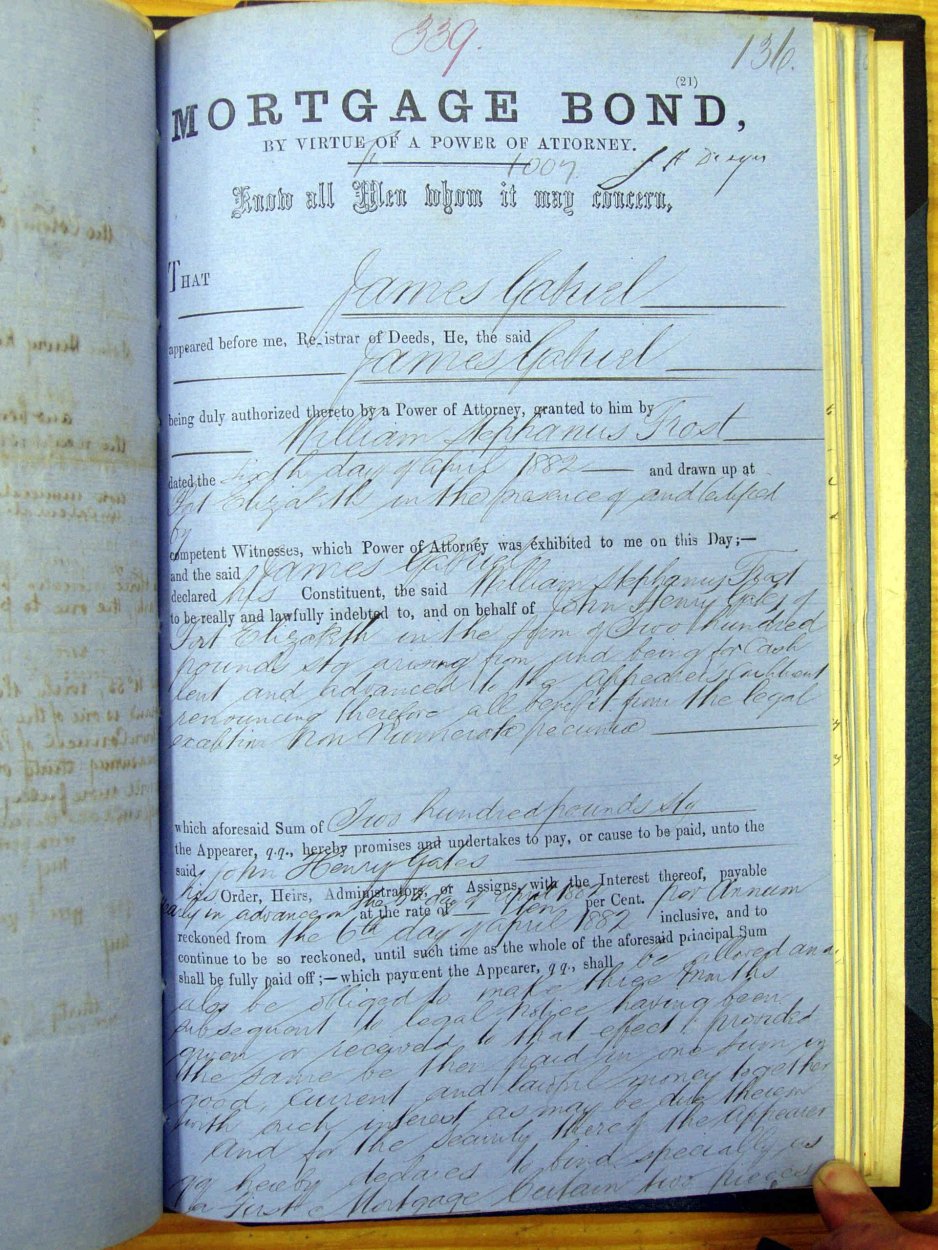 339.
136.
(21)
MORTGAGE BOND,
BY VIRTUE OF A POWER OF ATTORNEY.
1007.
Know all Men whom it may concern,
THAT James Gabriel
appeared before me, Registrar of Deeds, He, the said
James Gabriel
being duly authorized thereto by a Power of Attorney, granted to him by
William Stephanus Trost
dated the Sixth day of April 1882 and drawn up at
Port Elizabeth in the presence of and Certified
by
competent Witnesses, which Power of Attorney was exhibited to me on this Day;—
and the said James Gabriel
declared his Constituent, the said William Stephanus Trost
to be really and lawfully indebted to, and on behalf of John Henry Gates of
Port Elizabeth in the sum of Two hundred
pounds stg arising from and being for Cash
lent and advanced to the appearers Constituent
renouncing therefore all benefit from the legal
exception Non Numeratae pecuniae
which aforesaid Sum of Two hundred pounds stg
the Appearer, q.q., hereby promises and undertakes to pay, or cause to be paid, unto the
said John Henry Gates
his Order, Heirs, Administrators, or Assigns, with the Interest thereof, payable
yearly in advance on the day of April 1882 at the rate of Ten per Cent. per Annum
reckoned from the 6th day of April 1882 inclusive, and to
continue to be so reckoned, until such time as the whole of the aforesaid principal Sum
shall be fully paid off;—which payment the Appearer, q.q., shall be allowed and
also be obliged to make three months
subsequent to legal notice having been
given or received to that effect provided
the same be then paid in one sum in
good, current and lawful money together
with such interest as may be due therein
And for the security thereof the Appearer
qq hereby declares to bind specially as
a First Mortgage Certain two pieces